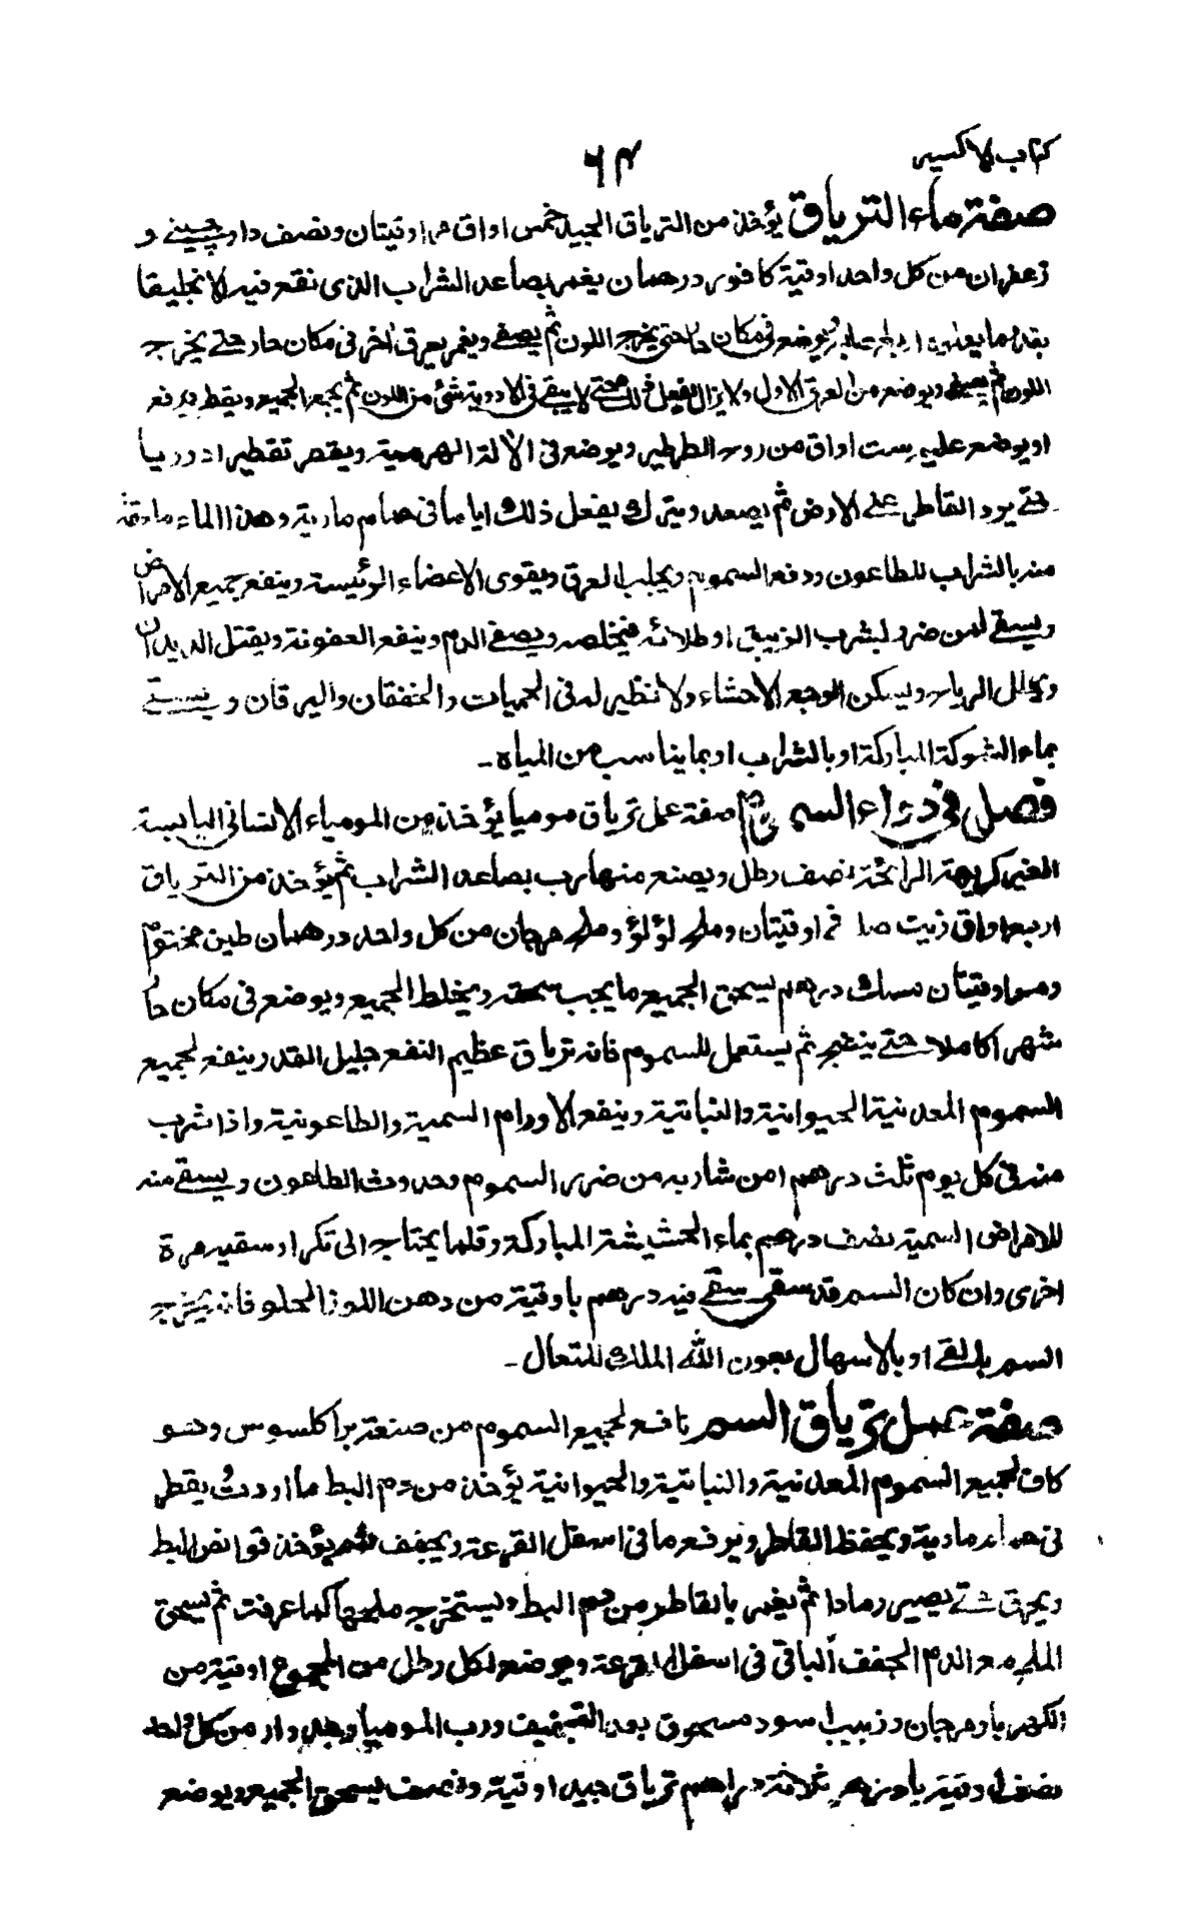 كتاب الاكسير
٦٣
صفة ماء الترياق يؤخذ من الترياق الجيد خمس اواق مر اوقيتان ونصف دارچيني و
زعفران من كل واحد اوقية كافور درهمان يغمر بصاعد الشراب الذى نقع فيه الانجليقا
بقدر ما يعلوه اربع اصابع يوضع فى مكان حار حتى يخرج اللون ثم يصفى ويغمر بعرق اخر فى مكان حار حتى يخرج
اللون ثم يصفى ويوضع من العرق الاول ولا يزال يفعل ذلك حتى لا يبقى فى الادوية شئ من اللون ثم يجمع الجميع ويقطر ويرفع
او يوضع عليه ست اواق من روح الطرطير ويوضع فى الالة الهرمسية ويقصر تقطيرا دوريا
حتى يرد القاطر على الارض ثم يصعد ويترك يفعل ذلك اياما فى حمام مارية وهذا الماء
منه بالشراب للطاعون ودفع السموم ويجلب العرق ويقوى الاعضاء الرئيسة وينفع جميع الامراض
ويسقى لمن ضر بشرب الزيبق او طلائه فيخلصه ويصفى الدم وينفع العفونة ويقتل الديدان
ويحلل الرياح ويسكن الوجع الاحشاء ولا نظير له فى الحميات والخفقان واليرقان ويسقى
بماء الشوكة المباركة او بالشراب او بما يناسب من المياه -
فصل فى دواء السم صفة عمل ترياق موميا يؤخذ من المومياء الانسانى اليابسة
الغير كريهة الرائحة نصف رطل ويصنع منها رب بصاعد الشراب ثم يؤخذ من الترياق
اربع اواق زيت اوقيتان وملح لؤلؤ وملح مرجان من كل واحد درهمان طين مختوم
اوقيتان مسك درهم يسحق الجميع ما يجب سحقه ويخلط الجميع ويوضع فى مكان حار
شهرا كاملا حتى ينضج ثم يستعمل للسموم فانه ترياق عظيم النفع جليل القدر ينفع لجميع
السموم المعدنية الحيوانية والنباتية وينفع الاورام السمية والطاعونية واذا شرب
منه فى كل يوم ثلث درهم امن شاربه من ضرر السموم وحدوث الطاعون ويسقى منه
للامراض السمية نصف درهم بماء الحشيشة المباركة وقلما يحتاج الى تكرار سقيه مرة
اخرى وان كان السم قد سقى سقى منه درهم باوقية من دهن اللوز الحلو فانه يخرج
السم بالقے او بالاسهال بعون الله الملك المتعال -
صفة عمل ترياق السم نافع لجميع السموم من صنعة براكلسوس وهو
كاف لجميع السموم المعدنية والنباتية والحيوانية يؤخذ من دم البط ما اردت يقطر
فى حمام مارية ويحفظ القاطر ويرفع ما فى اسفل القرعة ويجفف ثم يؤخذ قوانص البط
ويحرق حتى يصير رمادا ثم يغمر بالقاطر من دم البط ويستخرج ملحها كما عرفت ثم يسحق
الملح مع الدم المجفف الباقى فى اسفل القرعة ويوضع لكل رطل من المجموع اوقية من
الكهربا ومرجان وزبيب اسود مسحوق بعد التجفيف ورب الموميا وجدوار من كل واحد
نصف اوقية بادزهر ثلاثة دراهم ترياق جيد اوقية ونصف يسحق الجميع ويوضع